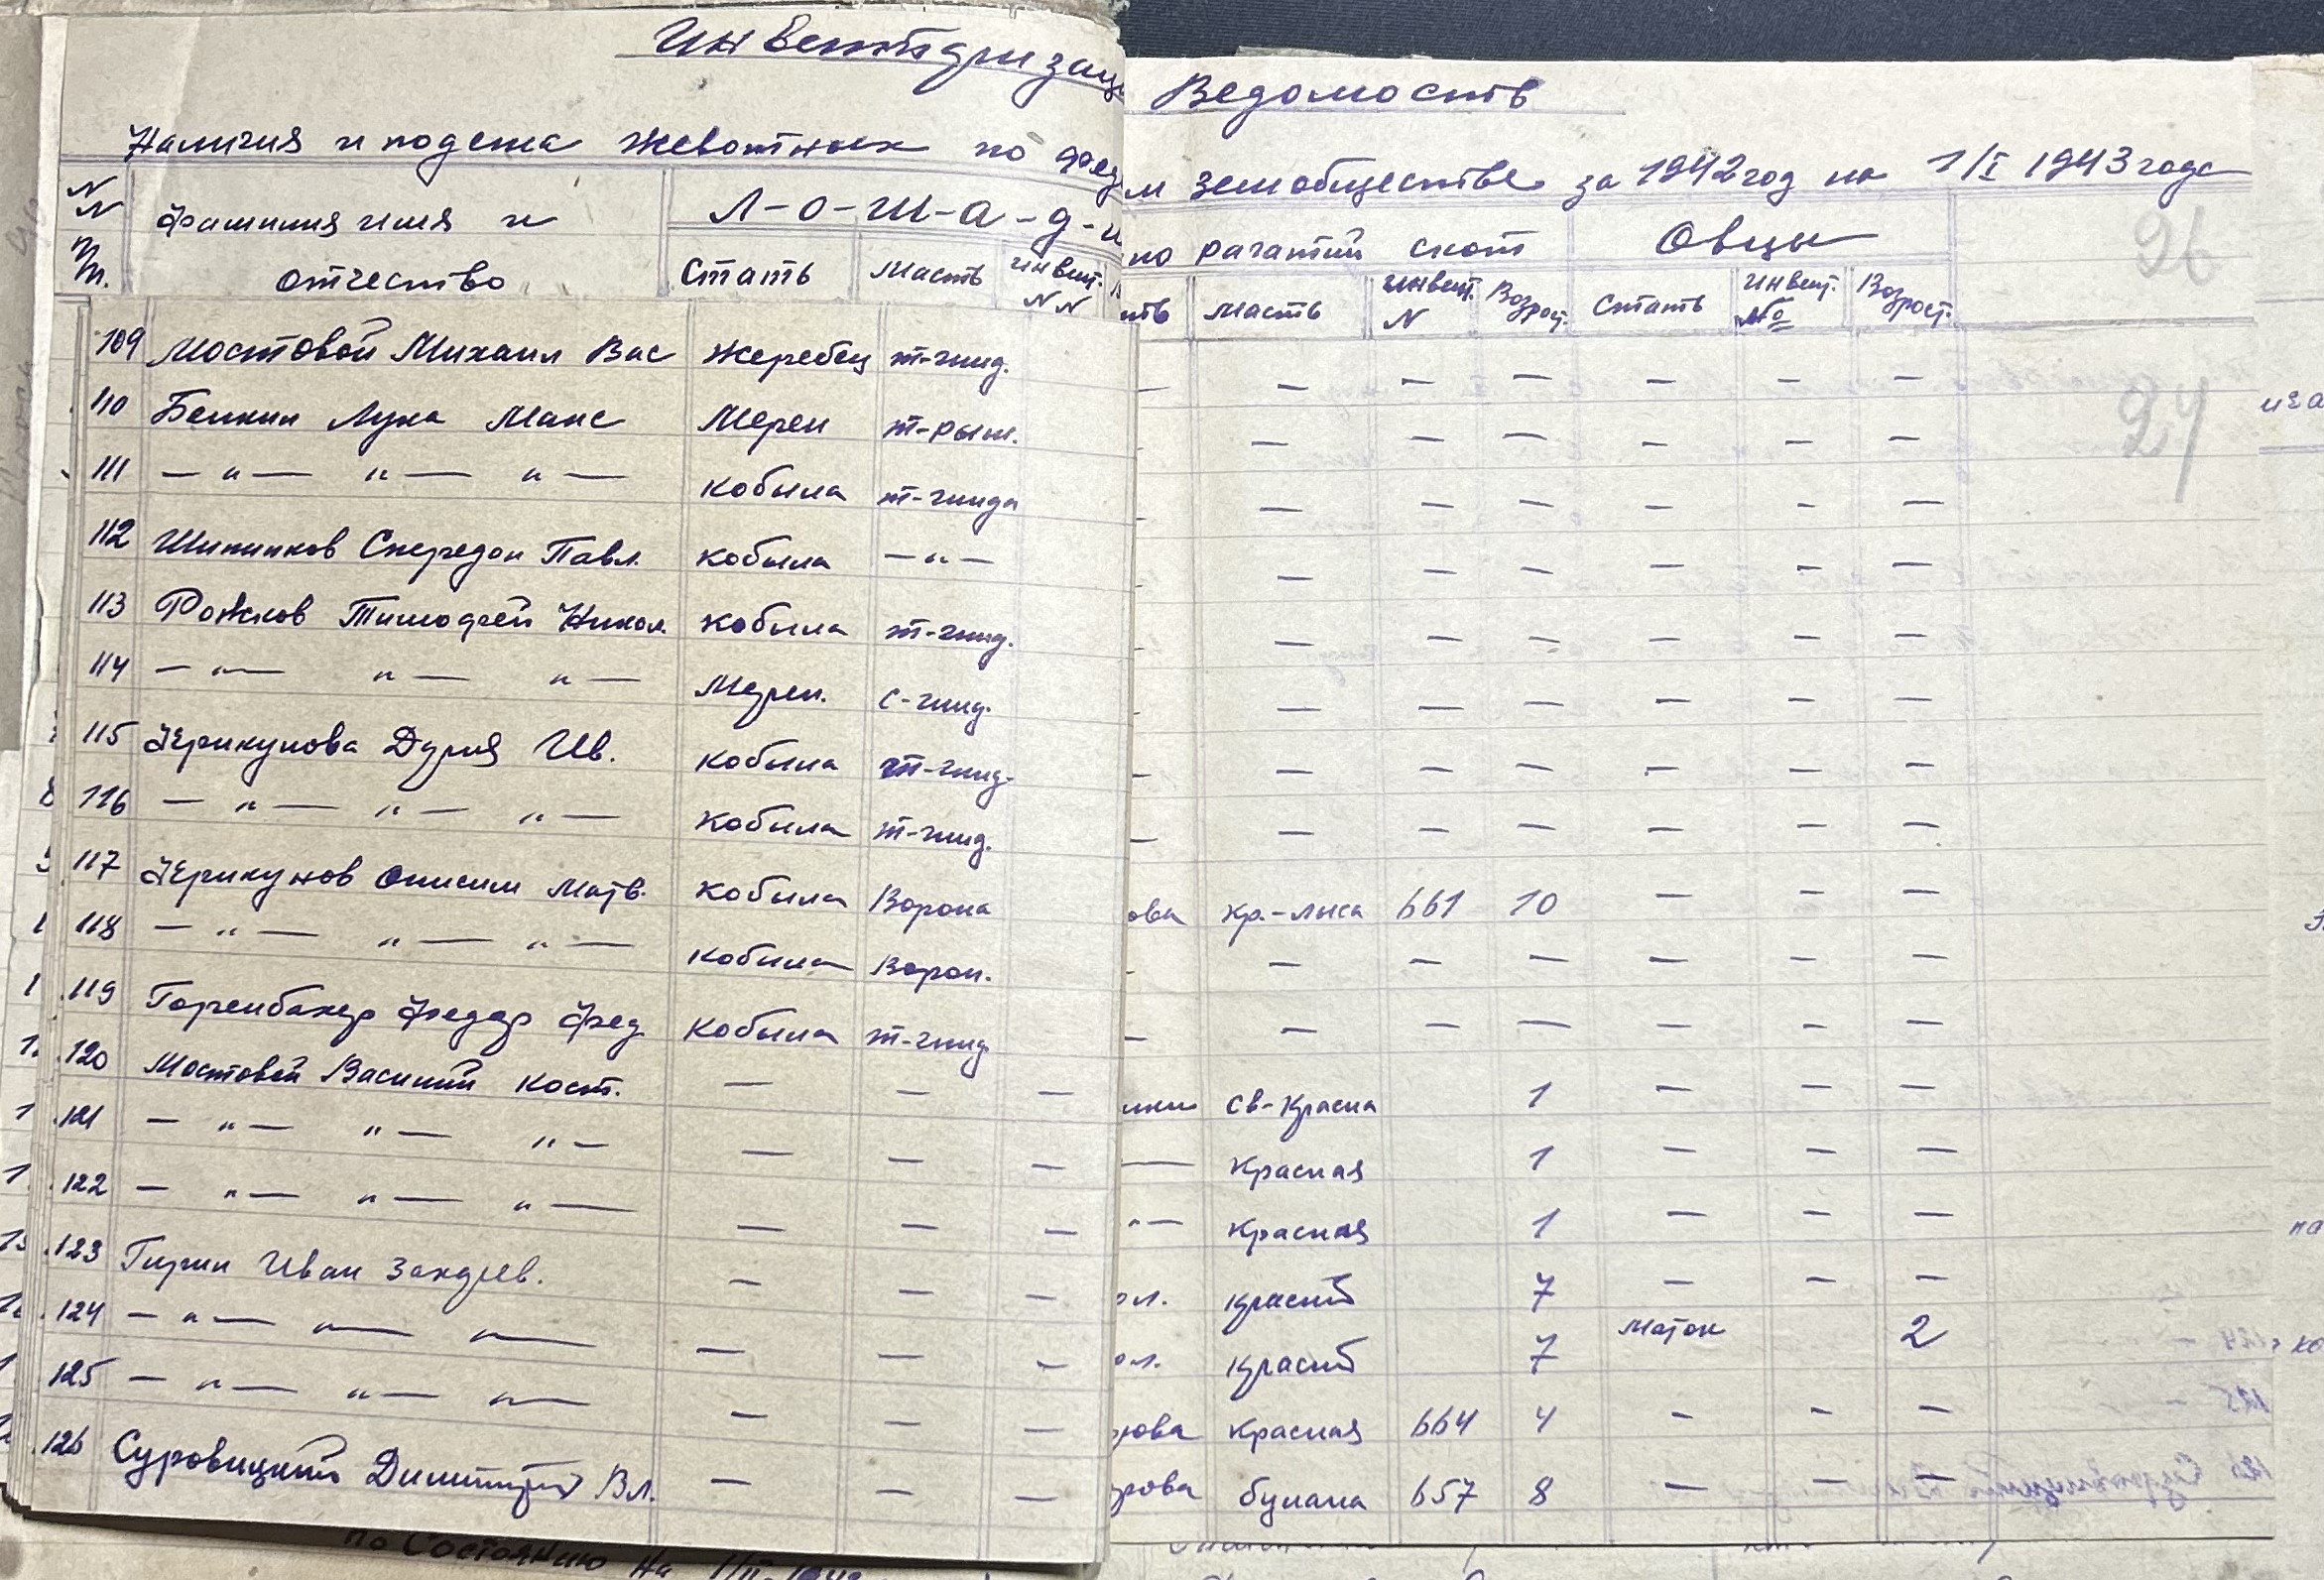 Инвентаризац Ведомость
Наличия и подежа жевотных по фед м земобществе за 1942 год на 1/I 1943 года
N N п/п. Фамилия имя и отчество Л-о-ш-а-д-и но рагатий скот Овцы 96
Стать Масть Инвент. N N сть Масть Инвент. N Возрост. Стать Инвент. № Возрост.
109 Мостовой Михаил Вас Жеребец т-гнид. — — — — — — —
110 Белкин Лука Макс Мерен т-рыж. — — — — — — — 27
111 — " — " — " — кобыла т-гнида — — — — — — —
112 Шипилков Спередон Павл. кобыла — " — — — — — — —
113 Рожков Тимофей Никол. кобыла т-гнид. — — — — — —
114 — " — " — " — Мерен. с-гнид. — — — — — —
115 Черикунова Дария Ив. кобыла т-гнид. — — — — — — —
116 — " — " — " — кобыла т-гнид. — — — — — — —
117 Черикунов Онисим Матв. кобыла Ворона ова кр.-лыса 661 10 — — —
118 — " — " — " — кобыла Ворон. — — — — — — —
119 Горченбахер Федор Фед. кобыла т-гнид. — — — — — — —
120 Мостовой Василий Кост. — — — лки св-красна 1 — — —
121 — " — " — " — — — — — Красная 1 — — —
122 — " — " — " — — — — " — Красная 1 — — —
123 Гирин Иван Захдрев. — — — ол. красной 7 — — —
124 — " — " — " — — — — ол. красной 7 маток 2
125 — " — " — " — — — — рова Красная 664 4 — — —
126 Суровицкий Димитрий Вл. — — — рова булана 657 8 — — —
по Состоянию на